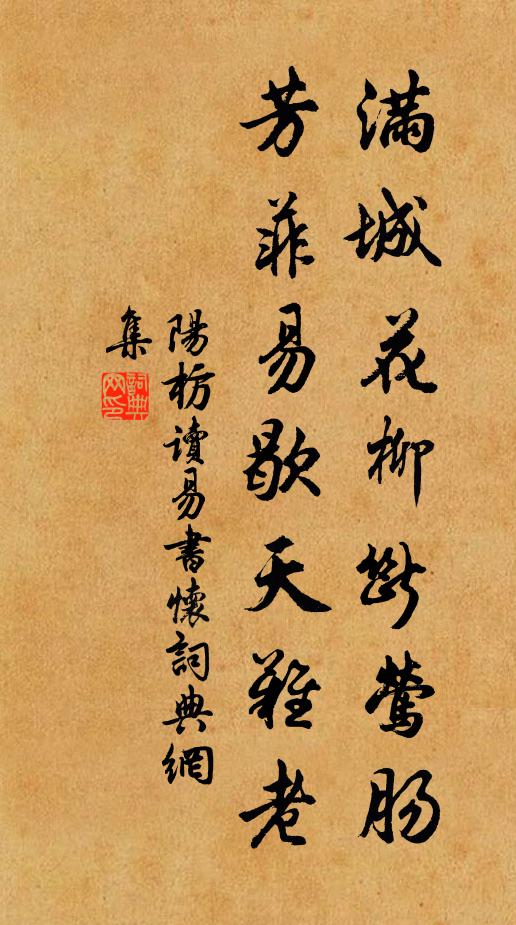 滿城花柳斷鶯腸
芳菲易歇天難老
陽枋讀易書懷詞典網
集
詞典網印